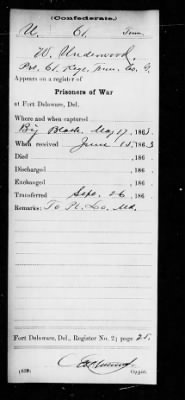 (Confederate.)
U. Cl. Tenn.
W. Underwood,
Pvt. Cl. Regt. Tenn. Co. G.
Appears on a register of
Prisoners of War
at Fort Delaware, Del.
Where and when captured
Big Black, May 17, 1863.
When received June 15, 1863
Died , 186 .
Discharged , 186 .
Exchanged , 186 .
Transferred Sept. 26, 186 .
Remarks: To Pt. Lo. Md.
Fort Delaware, Del., Register No. 2; page 25.
(639) Copyist.